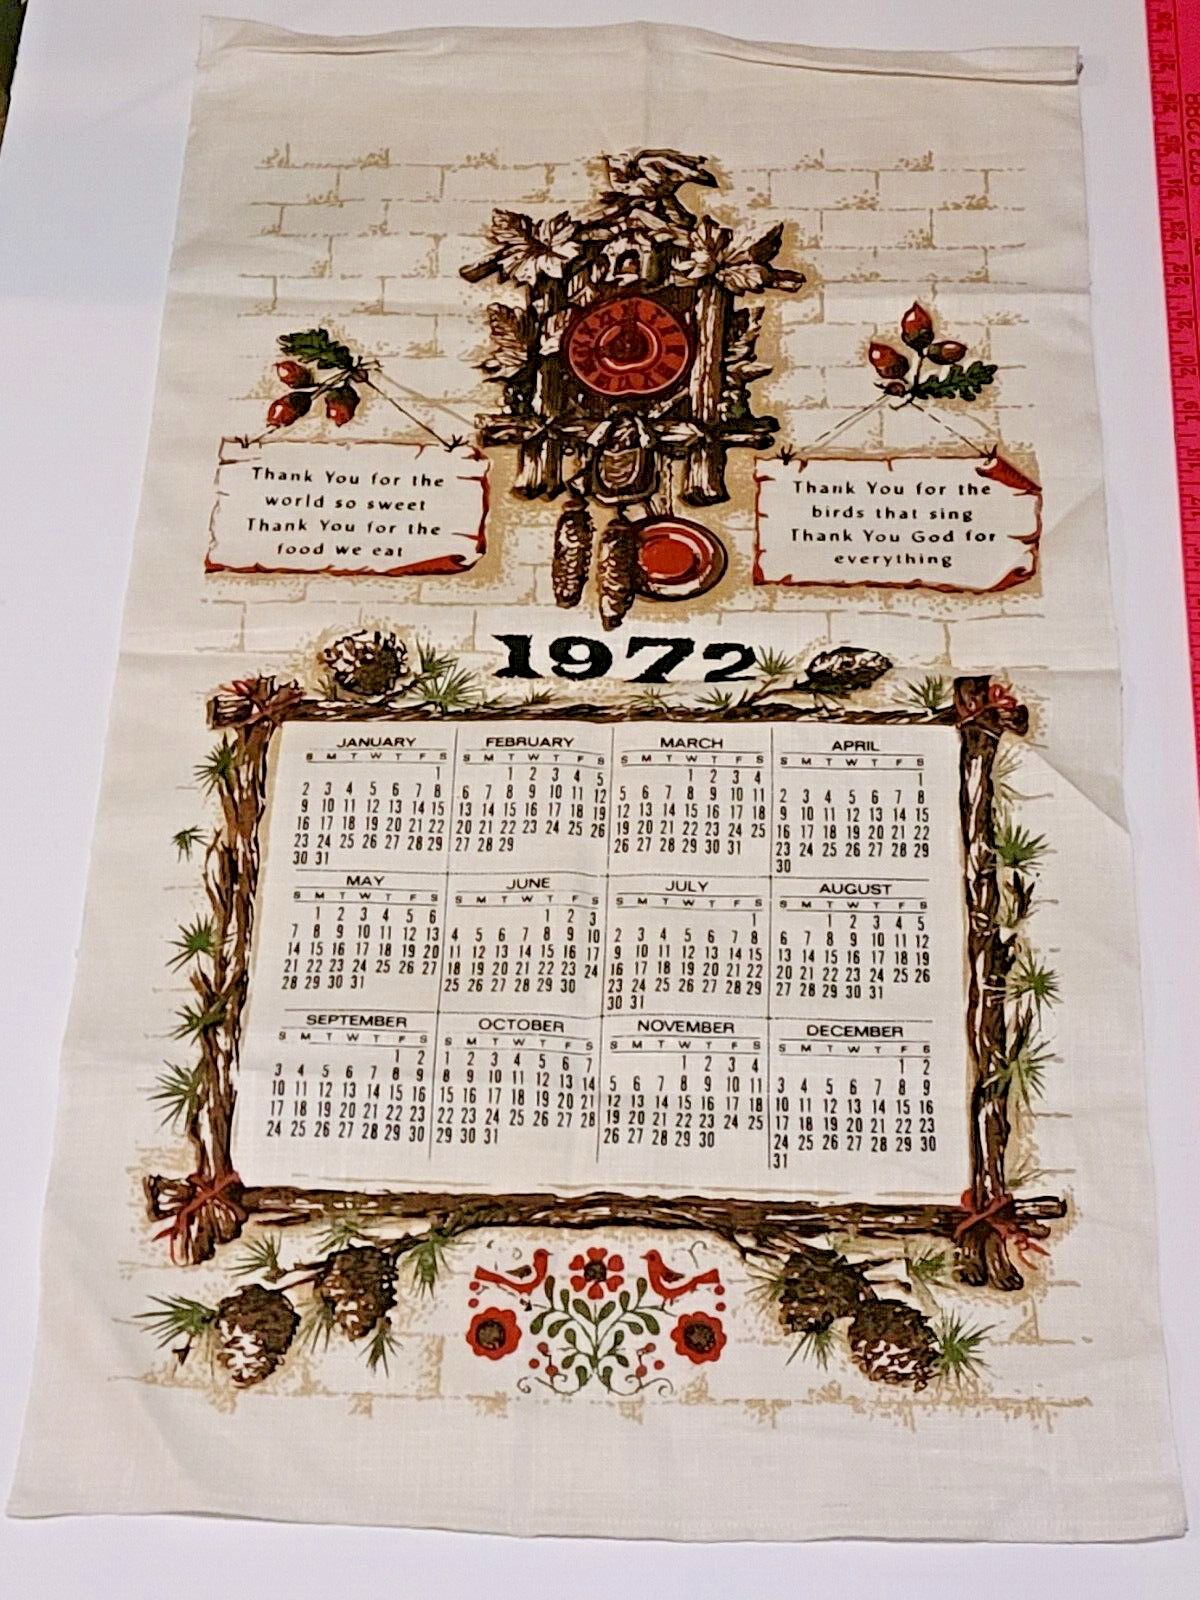 Thank You for the
world so sweet
Thank You for the
food we eat
Thank You for the
birds that sing
Thank You God for
everything
1972
JANUARY
S M T W T F S
1
2 3 4 5 6 7 8
9 10 11 12 13 14 15
16 17 18 19 20 21 22
23 24 25 26 27 28 29
30 31
FEBRUARY
S M T W T F S
1 2 3 4 5
6 7 8 9 10 11 12
13 14 15 16 17 18 19
20 21 22 23 24 25 26
27 28 29
MARCH
S M T W T F S
1 2 3 4
5 6 7 8 9 10 11
12 13 14 15 16 17 18
19 20 21 22 23 24 25
26 27 28 29 30 31
APRIL
S M T W T F S
1
2 3 4 5 6 7 8
9 10 11 12 13 14 15
16 17 18 19 20 21 22
23 24 25 26 27 28 29
30
MAY
S M T W T F S
1 2 3 4 5 6
7 8 9 10 11 12 13
14 15 16 17 18 19 20
21 22 23 24 25 26 27
28 29 30 31
JUNE
S M T W T F S
1 2 3
4 5 6 7 8 9 10
11 12 13 14 15 16 17
18 19 20 21 22 23 24
25 26 27 28 29 30
JULY
S M T W T F S
1
2 3 4 5 6 7 8
9 10 11 12 13 14 15
16 17 18 19 20 21 22
23 24 25 26 27 28 29
30 31
AUGUST
S M T W T F S
1 2 3 4 5
6 7 8 9 10 11 12
13 14 15 16 17 18 19
20 21 22 23 24 25 26
27 28 29 30 31
SEPTEMBER
S M T W T F S
1 2
3 4 5 6 7 8 9
10 11 12 13 14 15 16
17 18 19 20 21 22 23
24 25 26 27 28 29 30
OCTOBER
S M T W T F S
1 2 3 4 5 6 7
8 9 10 11 12 13 14
15 16 17 18 19 20 21
22 23 24 25 26 27 28
29 30 31
NOVEMBER
S M T W T F S
1 2 3 4
5 6 7 8 9 10 11
12 13 14 15 16 17 18
19 20 21 22 23 24 25
26 27 28 29 30
DECEMBER
S M T W T F S
1 2
3 4 5 6 7 8 9
10 11 12 13 14 15 16
17 18 19 20 21 22 23
24 25 26 27 28 29 30
31